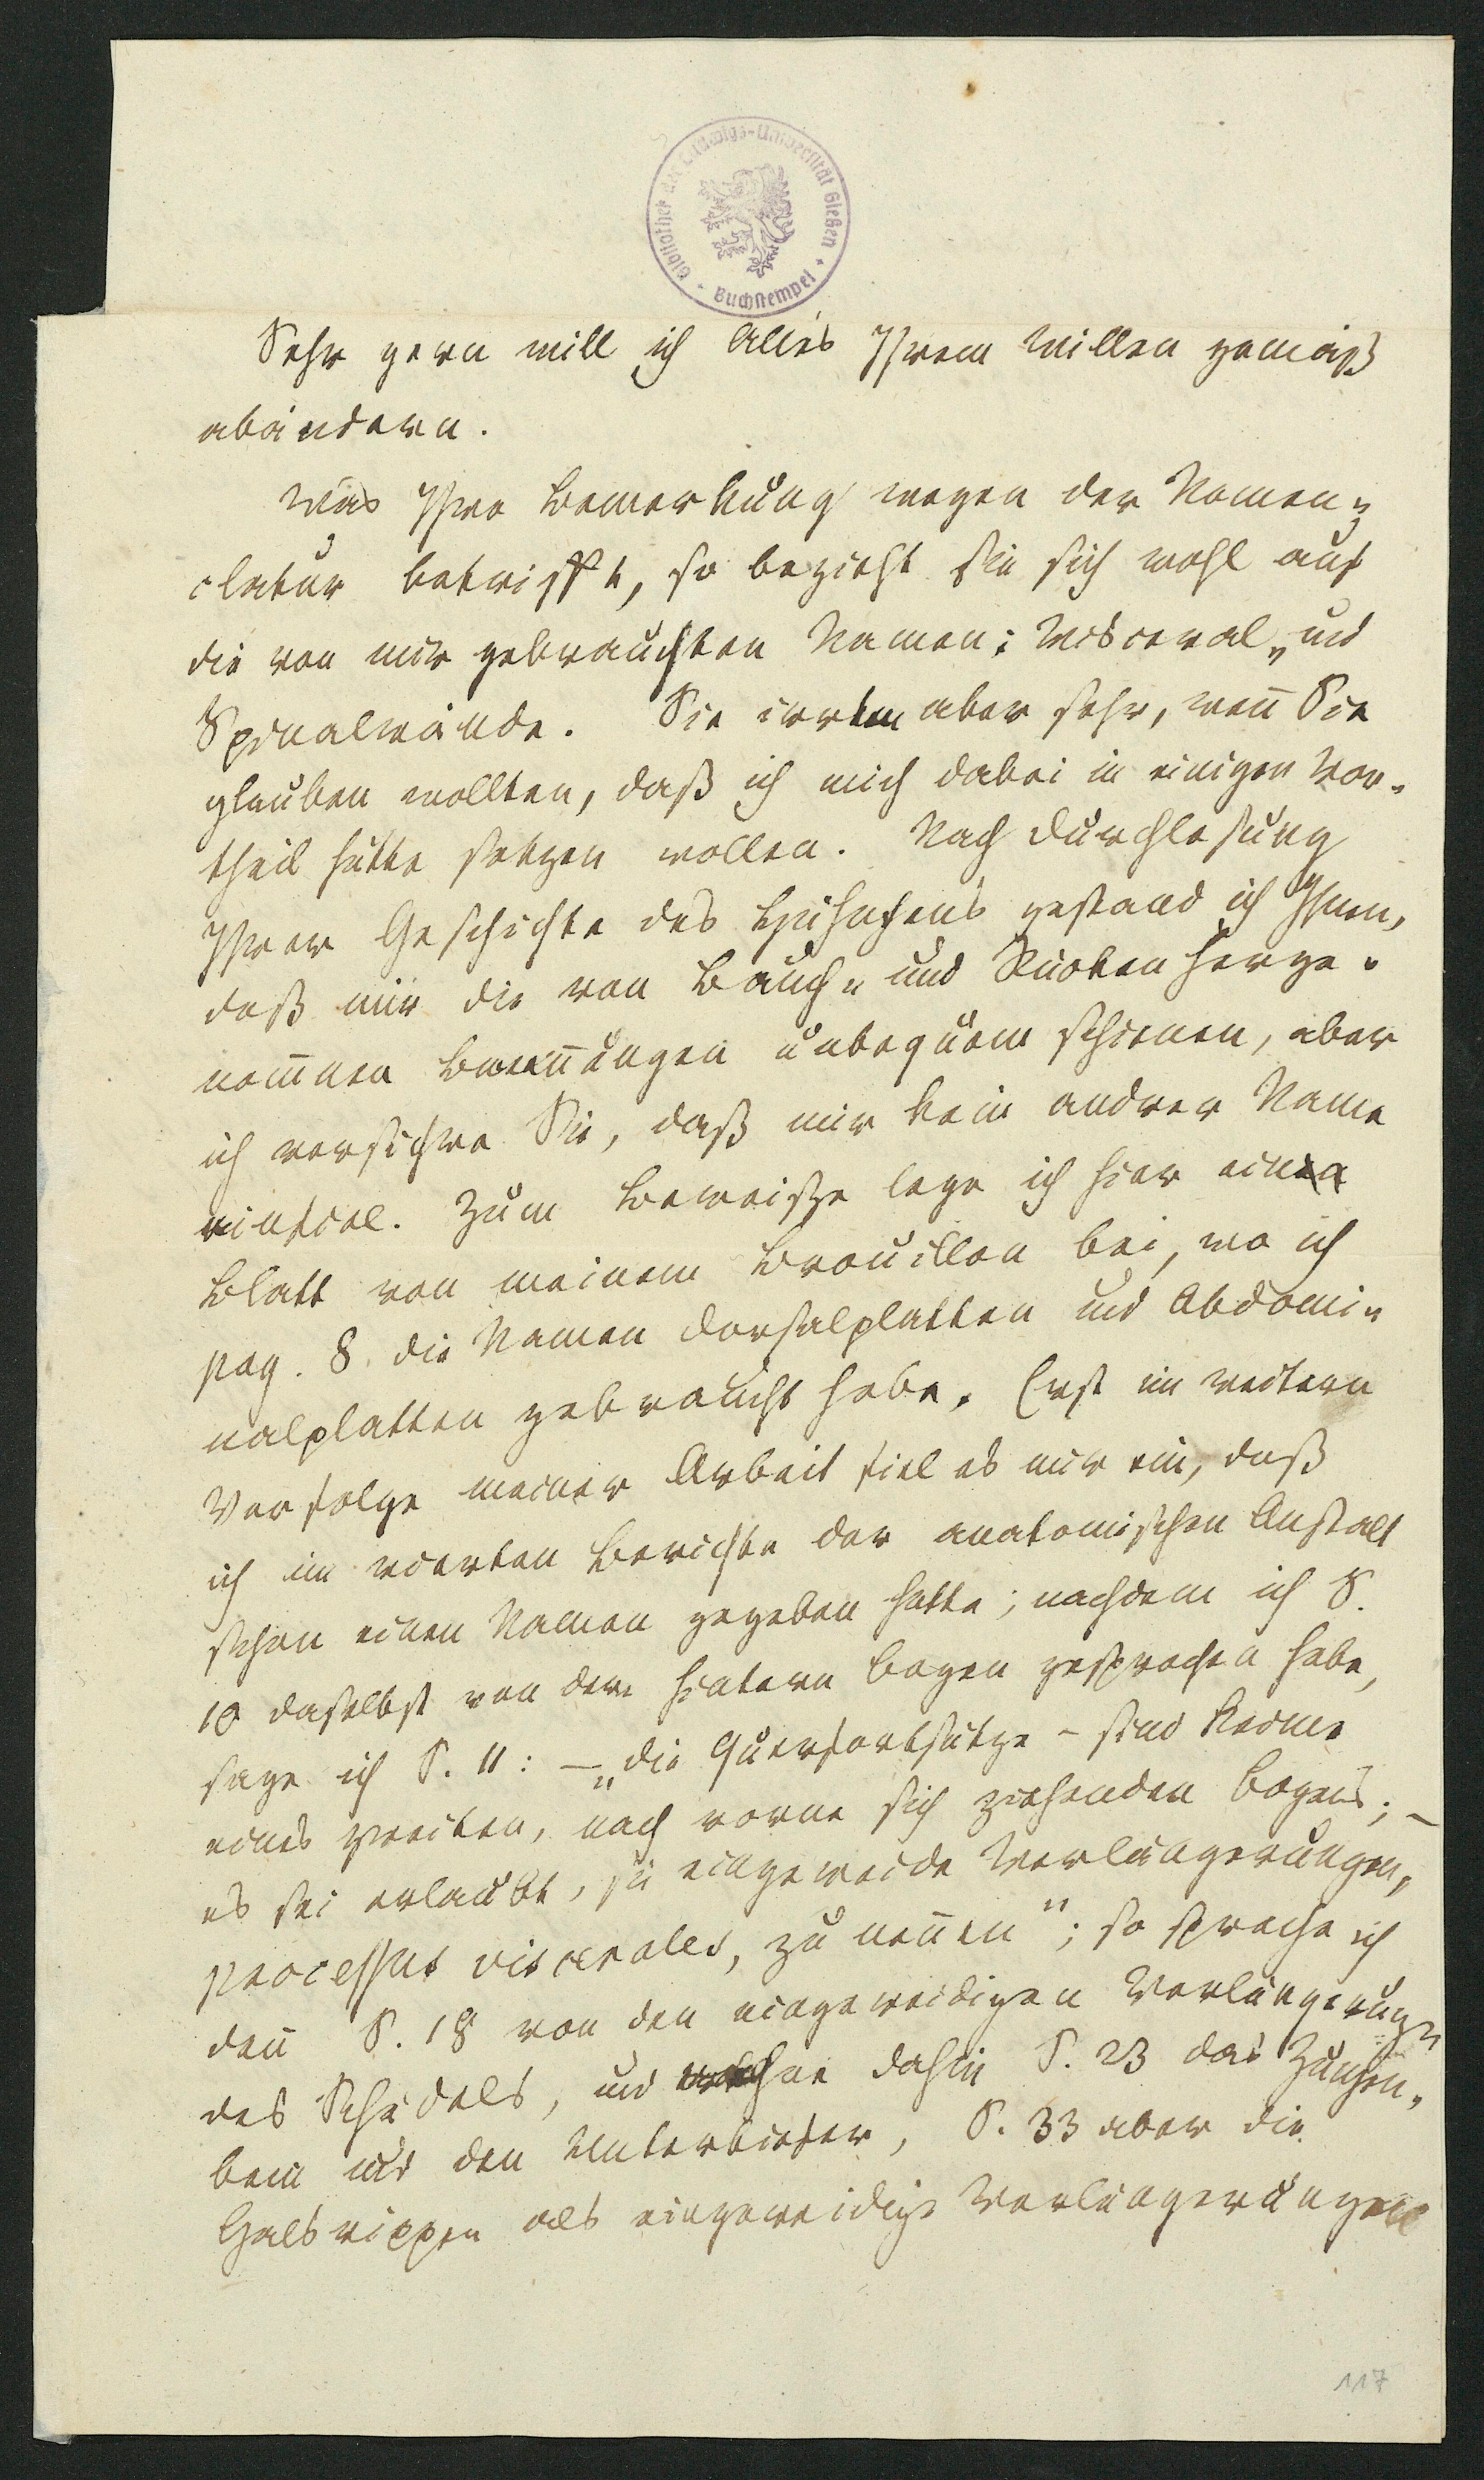 Bibliothek der Ludwigs-Universität Gießen
Buchstempel
Sehr gern will ich Alles Ihrem Willen gemäß
abändern.
Was Ihre Bemerkung wegen der Nomen-
clatur betrifft, so bezieht sie sich wohl auf
die von mir gebrauchten Namen: Visceral- und
Spinalwände. Sie irrten aber sehr, wen̄ Sie
glauben wollten, daß ich mich dabei in einigen Vor-
theil hätte setzen wollen. Nach Durchlesung
Ihrer Geschichte des Hühnchens gestand ich Ihnen,
daß mir die von Bauch- und Rücken herge-
nom̄nen Benen̄ungen unbequem schienen, aber
ich versichre Sie, daß mir kein andrer Name
einfiel. Zum Beweiße lege ich hier ein
Blatt von meinem Brouillon bei, wo ich
pag. 8. die Namen Dorsalplatten und Abdomi-
nalplatten gebraucht habe. Erst im weitern
Verfolge meiner Arbeit fiel es mir ein, daß
ich im vierten Berichte der anatomischen Anstalt
schon einen Namen gegeben hatte; nachdem ich S.
10 daselbst von dem hintern Bogen gesprochen habe,
sage ich S. 11: — „die Querfortsätze – sind Keime
eines zweiten, nach vorne sich ziehenden Bogens; —
es sei erlaubt, sie eingeweide Verlängerungen,
processus viscerales, zu nen̄en"; so spreche ich
den̄ S. 18 von den eingeweidigen Verlängerungen
des Schädels, und rechne dahin S. 23 das Zungen-
bein und den Unterkiefer, S. 33 aber die
Halsrippen als eingeweidige Verlängerungen
117